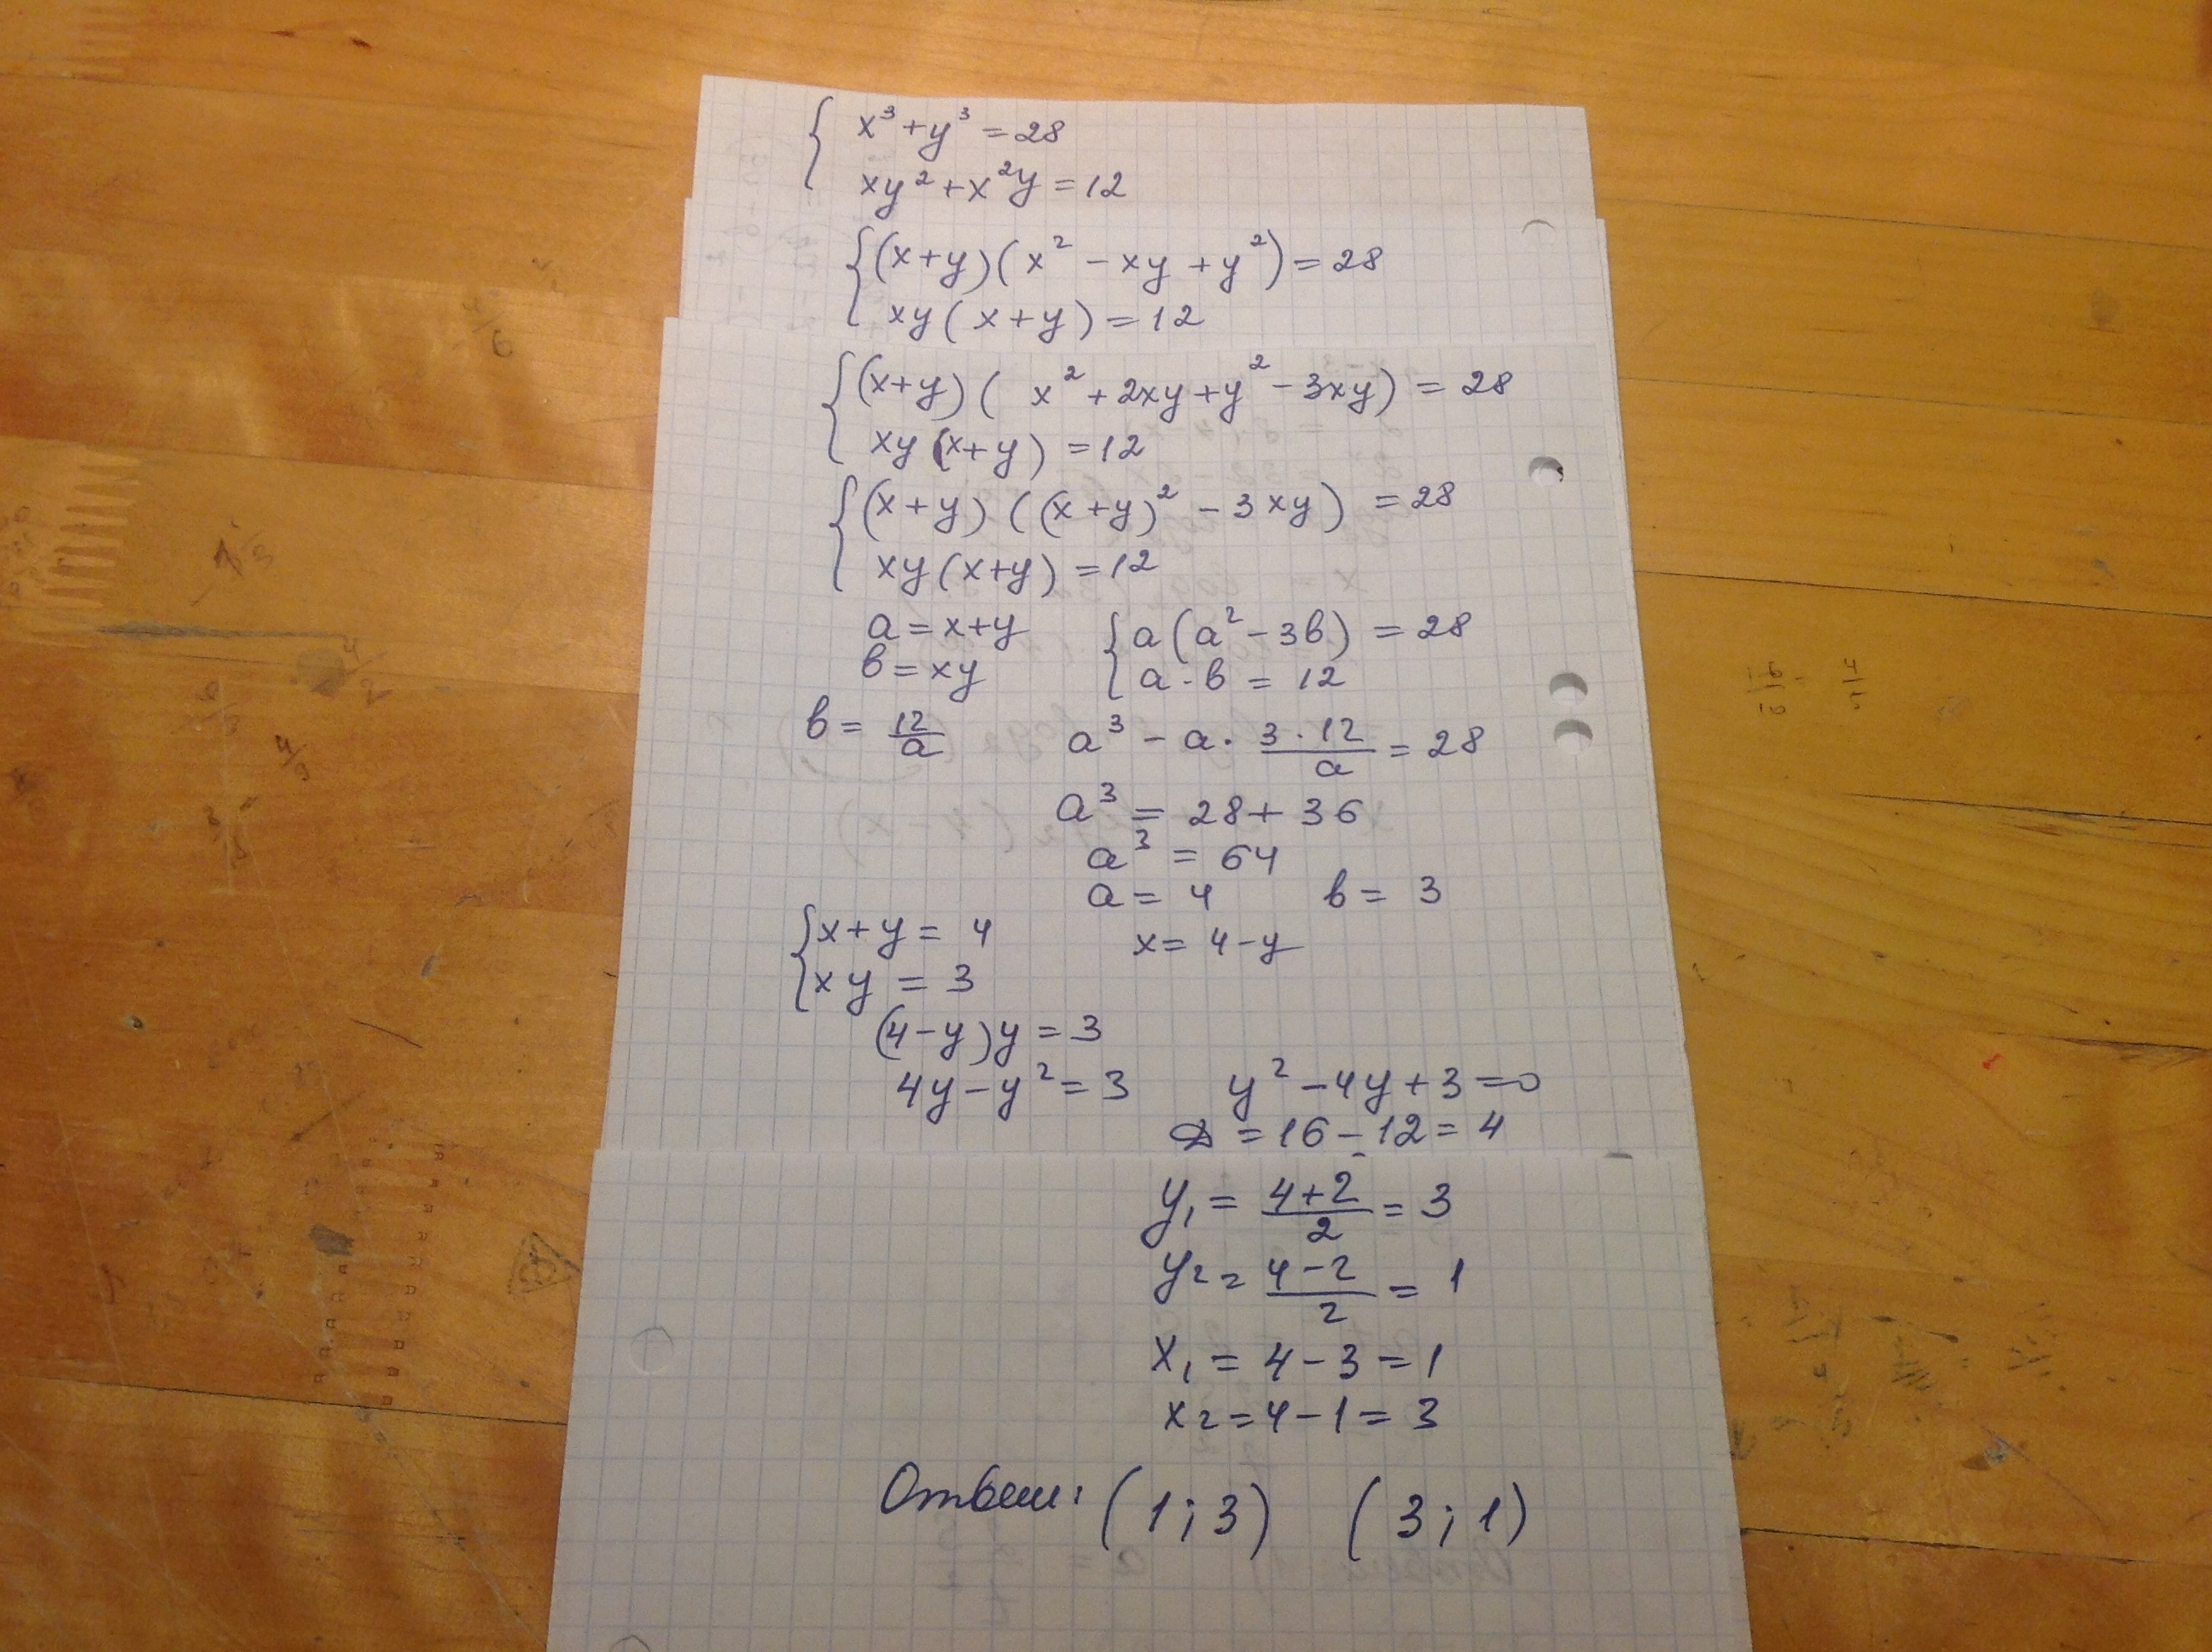 { x³ + y³ = 28
xy² + x²y = 12
{ (x+y)(x² - xy + y²) = 28
xy(x+y) = 12
{ (x+y)(x² + 2xy + y² - 3xy) = 28
xy(x+y) = 12
{ (x+y)((x+y)² - 3xy) = 28
xy(x+y) = 12
a = x+y { a(a² - 3b) = 28
b = xy a · b = 12
b = 12/a a³ - a · 3·12/a = 28
a³ = 28 + 36
a³ = 64
a = 4 b = 3
{ x+y = 4 x = 4-y
xy = 3
(4-y)y = 3
4y - y² = 3 y² - 4y + 3 = 0
D = 16 - 12 = 4
y₁ = 4+2/2 = 3
y₂ = 4-2/2 = 1
x₁ = 4 - 3 = 1
x₂ = 4 - 1 = 3
Ответ: (1; 3) (3; 1)